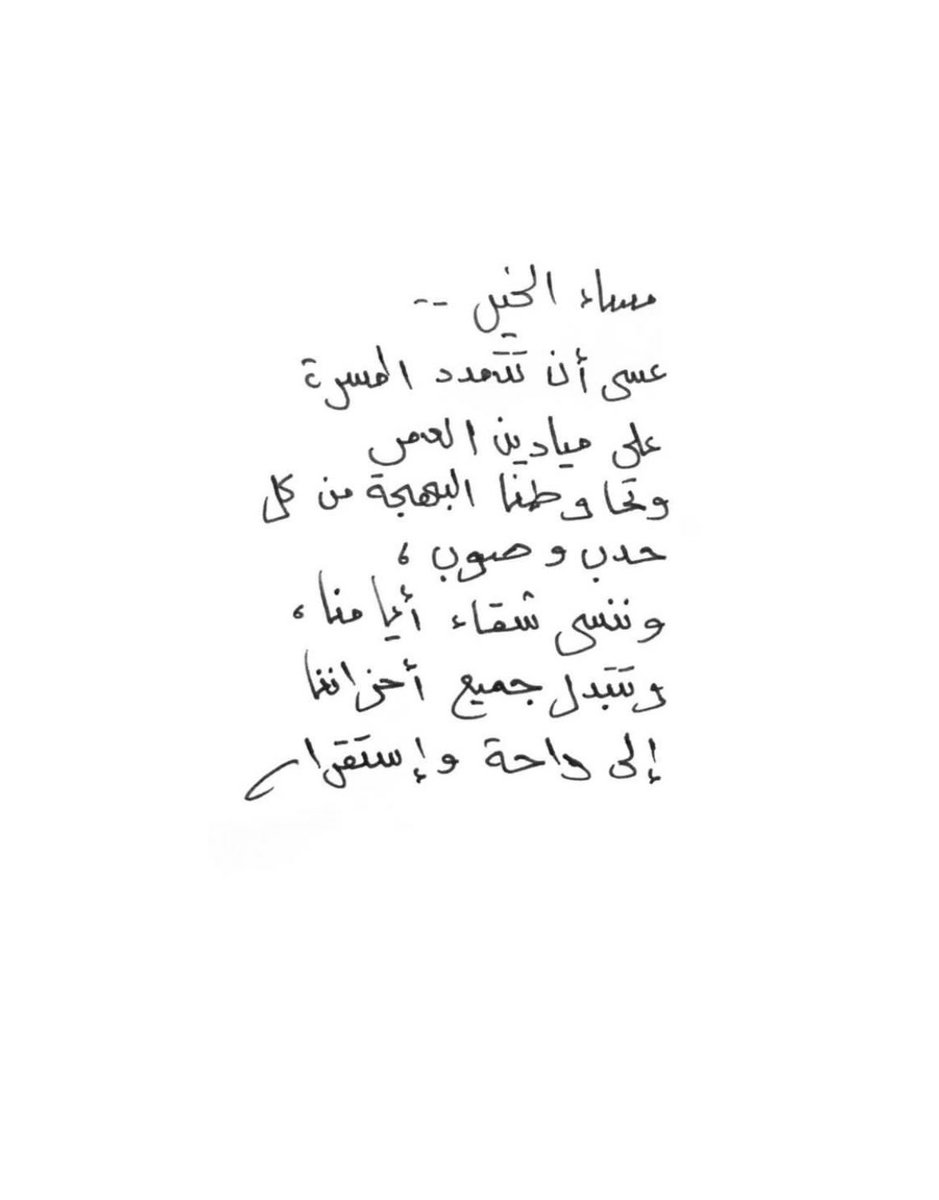 مساء الخير --
عسى أن تتمدد المسرة
على ميادين العمر
وتحاوطنا البهجة من كل
حدب و صوب ،
وننسى شقاء أيامنا ،
وتتبدل جميع أحزاننا
إلى واحة وإستقرار